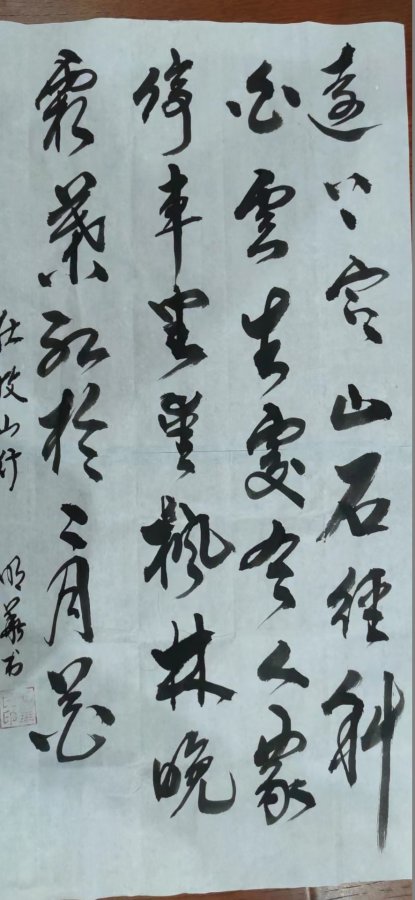 遠上寒山石徑斜
白雲生處有人家
停車坐愛楓林晚
霜葉紅於二月花
杜牧山行 明華书